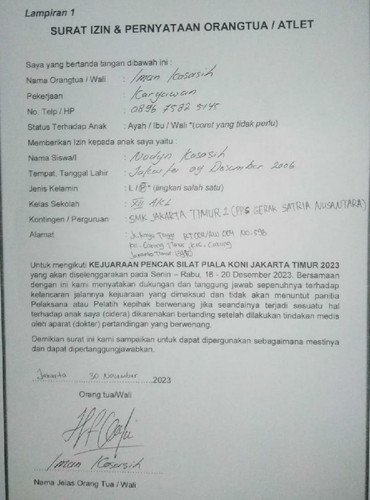 Lampiran 1
SURAT IZIN & PERNYATAAN ORANGTUA / ATLET
Saya yang bertanda tangan dibawah ini :
Nama Orangtua / Wali : Iman Kosasih
Pekerjaan : Karyawan
No. Telp / HP : 0896 7582 5145
Status Terhadap Anak : Ayah / Ibu / Wali *(coret yang tidak perlu)
Memberikan Izin kepada anak saya yaitu :
Nama Siswa/i : Kosasih
Tempat, Tanggal Lahir : Jakarta 09 Desember 2006
Jenis Kelamin : L / P * (lingkari salah satu)
Kelas Sekolah : XII AKL
Kontingen / Perguruan : SMK JAKARTA TIMUR 2 (PPS GERAK SATRIA NUSANTARA)
Alamat : Tinggi RT 004/ 004 NO.
Timur Kec.
Jakarta Timur
Untuk mengikuti KEJUARAAN PENCAK SILAT PIALA KONI JAKARTA TIMUR 2023
yang akan diselenggarakan pada Senin – Rabu, 18 - 20 Desember 2023. Bersamaan
dengan ini kami menyatakan dukungan dan tanggung jawab sepenuhnya terhadap
kelancaran jalannya kejuaraan yang dimaksud dan tidak akan menuntut panitia
Pelaksana atau Pelatih kepihak berwenang jika seandainya terjadi sesuatu hal
terhadap anak saya (cidera) dikarenakan bertanding setelah dilakukan tindakan medis
oleh aparat (dokter) pertandingan yang berwenang.
Demikian surat ini kami sampaikan untuk dapat dipergunakan sebagaimana mestinya
dan dapat dipertanggungjawabkan.
Jakarta 30 November 2023
Orang tua/Wali
Iman Kosasih
Nama Jelas Orang Tua / Wali